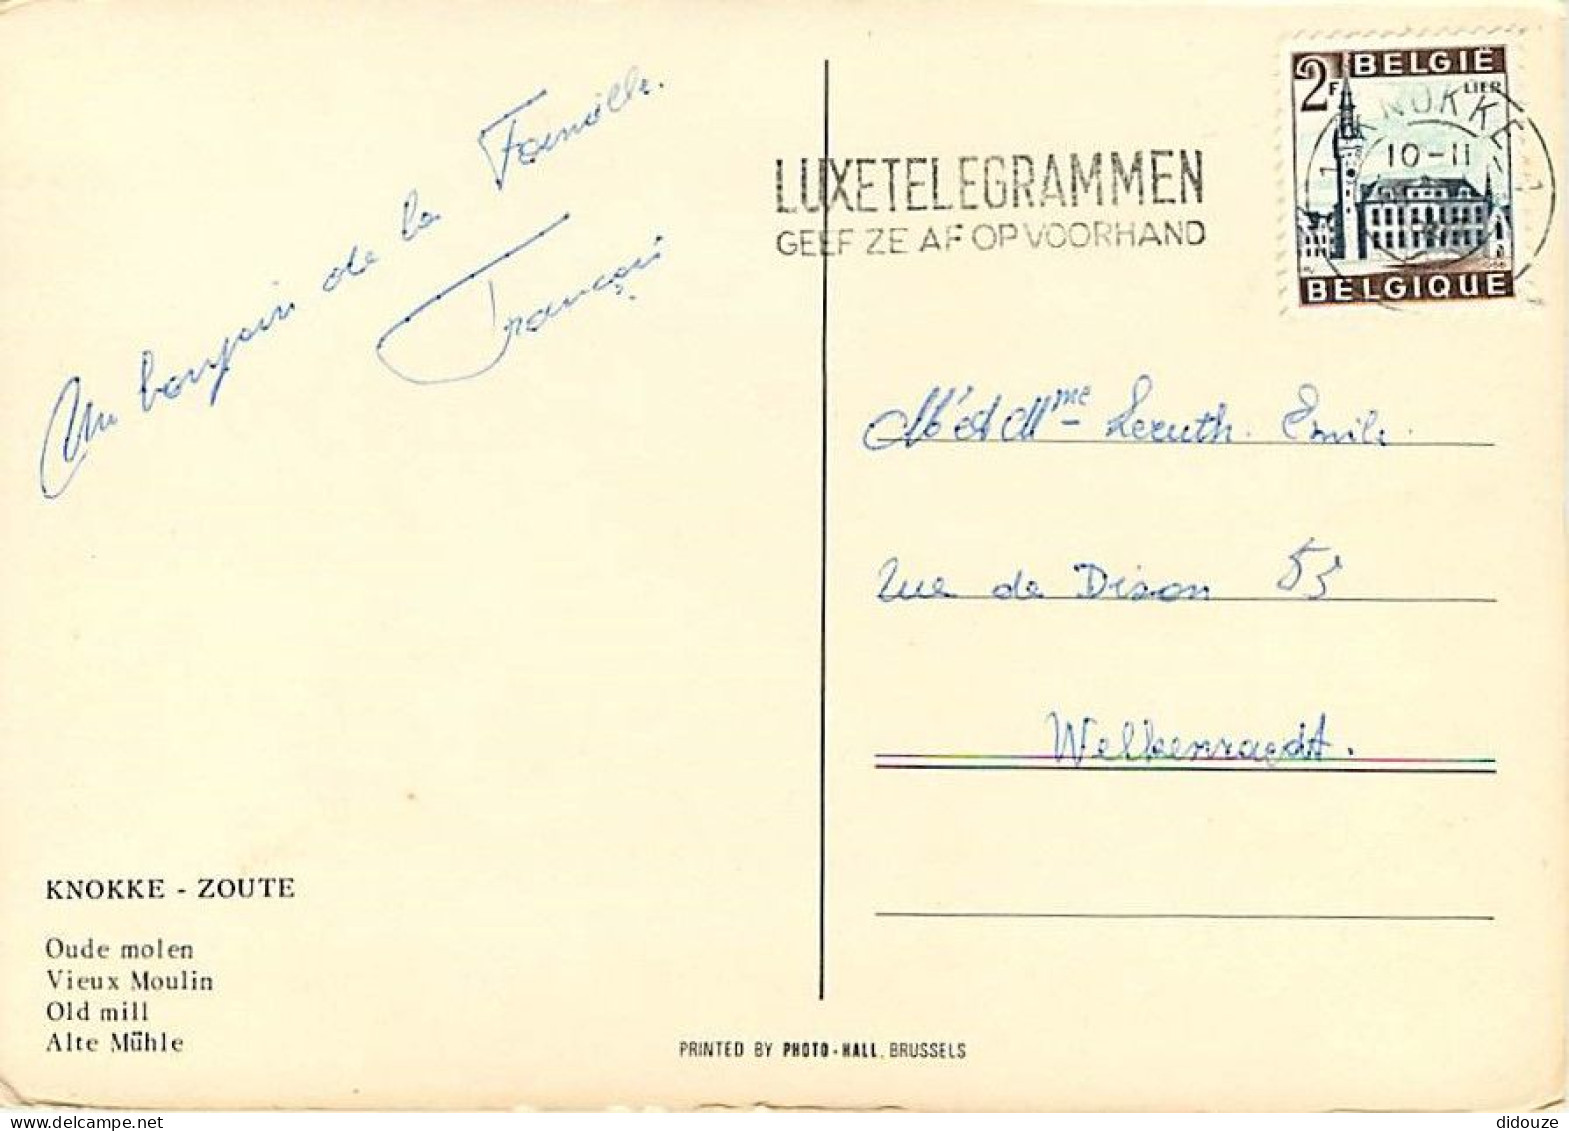 Un bonjour de la Famille.
François
LUXETELEGRAMMEN
GEEF ZE AF OP VOORHAND
BELGIË
2F
LIER
1 KNOKKE 1
10-11
1966
BELGIQUE
Mr et Mme Leruth Emile.
rue de Dison 53
Welkenraedt.
KNOKKE - ZOUTE
Oude molen
Vieux Moulin
Old mill
Alte Mühle
PRINTED BY PHOTO-HALL, BRUSSELS
didouze